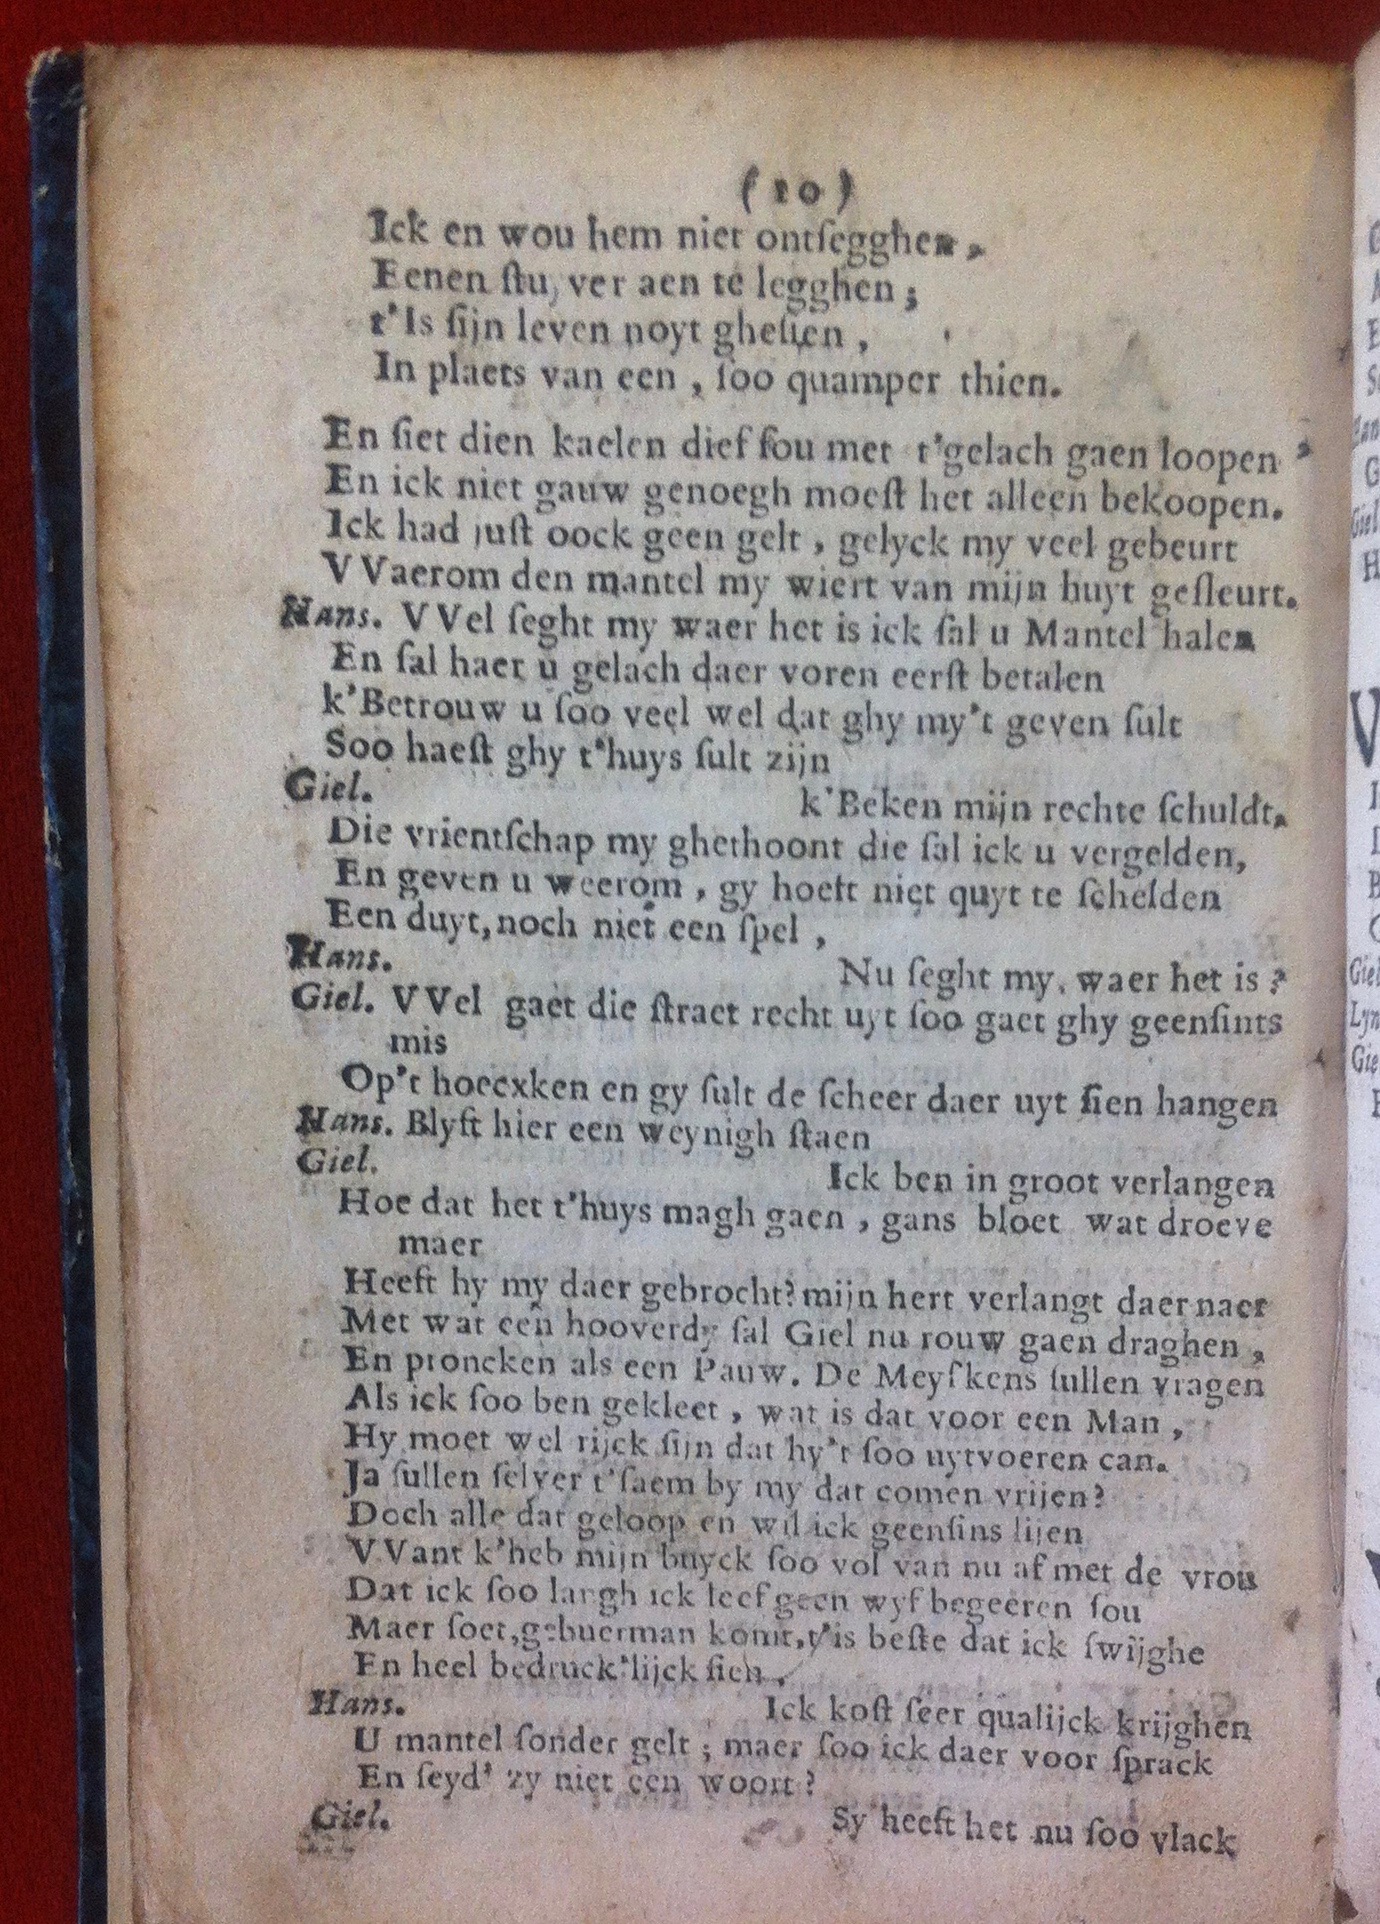 (10)
Ick en wou hem niet ontſegghen,
Eenen ſtuyver aen te legghen;
t'Is ſijn leven noyt gheſien,
In plaets van een, ſoo quamper thien.
En ſiet dien kaelen dief ſou met t'gelach gaen loopen,
En ick niet gauw genoegh moeſt het alleen bekoopen.
Ick had juſt oock geen gelt, gelyck my veel gebeurt
VVaerom den mantel my wiert van mijn huyt geſleurt.
Hans. VVel ſeght my waer het is ick ſal u Mantel halen
En ſal haer u gelach daer voren eerſt betalen
k'Betrouw u ſoo veel wel dat ghy my't geven ſult
Soo haeſt ghy t'huys ſult zijn
Giel. k'Beken mijn rechte ſchuldt.
Die vrientſchap my ghethoont die ſal ick u vergelden,
En geven u weerom, gy hoeft niet quyt te ſchelden
Een duyt, noch niet een ſpel,
Hans. Nu ſeght my, waer het is?
Giel. VVel gaet die ſtraet recht uyt ſoo gaet ghy geenſints
mis
Op't hoecxken en gy ſult de ſcheer daer uyt ſien hangen
Hans. Blyft hier een weynigh ſtaen
Giel. Ick ben in groot verlangen
Hoe dat het t'huys magh gaen, gans bloet wat droeve
maer
Heeft hy my daer gebrocht? mijn hert verlangt daer naer
Met wat een hooverdy ſal Giel nu rouw gaen draghen,
En proncken als een Pauw. De Meyſkens ſullen vragen
Als ick ſoo ben gekleet, wat is dat voor een Man,
Hy moet wel rijck ſijn dat hy't ſoo uytvoeren can.
Ja ſullen ſelver t'ſaem by my dat comen vrijen?
Doch alle dat geloop en wil ick geenſins lijen
VVant k'heb mijn buyck ſoo vol van nu af met de vrou
Dat ick ſoo langh ick leef geen wyf begeeren ſou
Maer ſoet, gebuerman komt, t'is beſte dat ick ſwijghe
En heel bedruck'lijck ſien.
Hans. Ick koſt ſeer qualijck krijghen
U mantel ſonder gelt; maer ſoo ick daer voor ſprack
En ſeyd' zy niet een woort?
Giel. Sy heeft het nu ſoo vlack